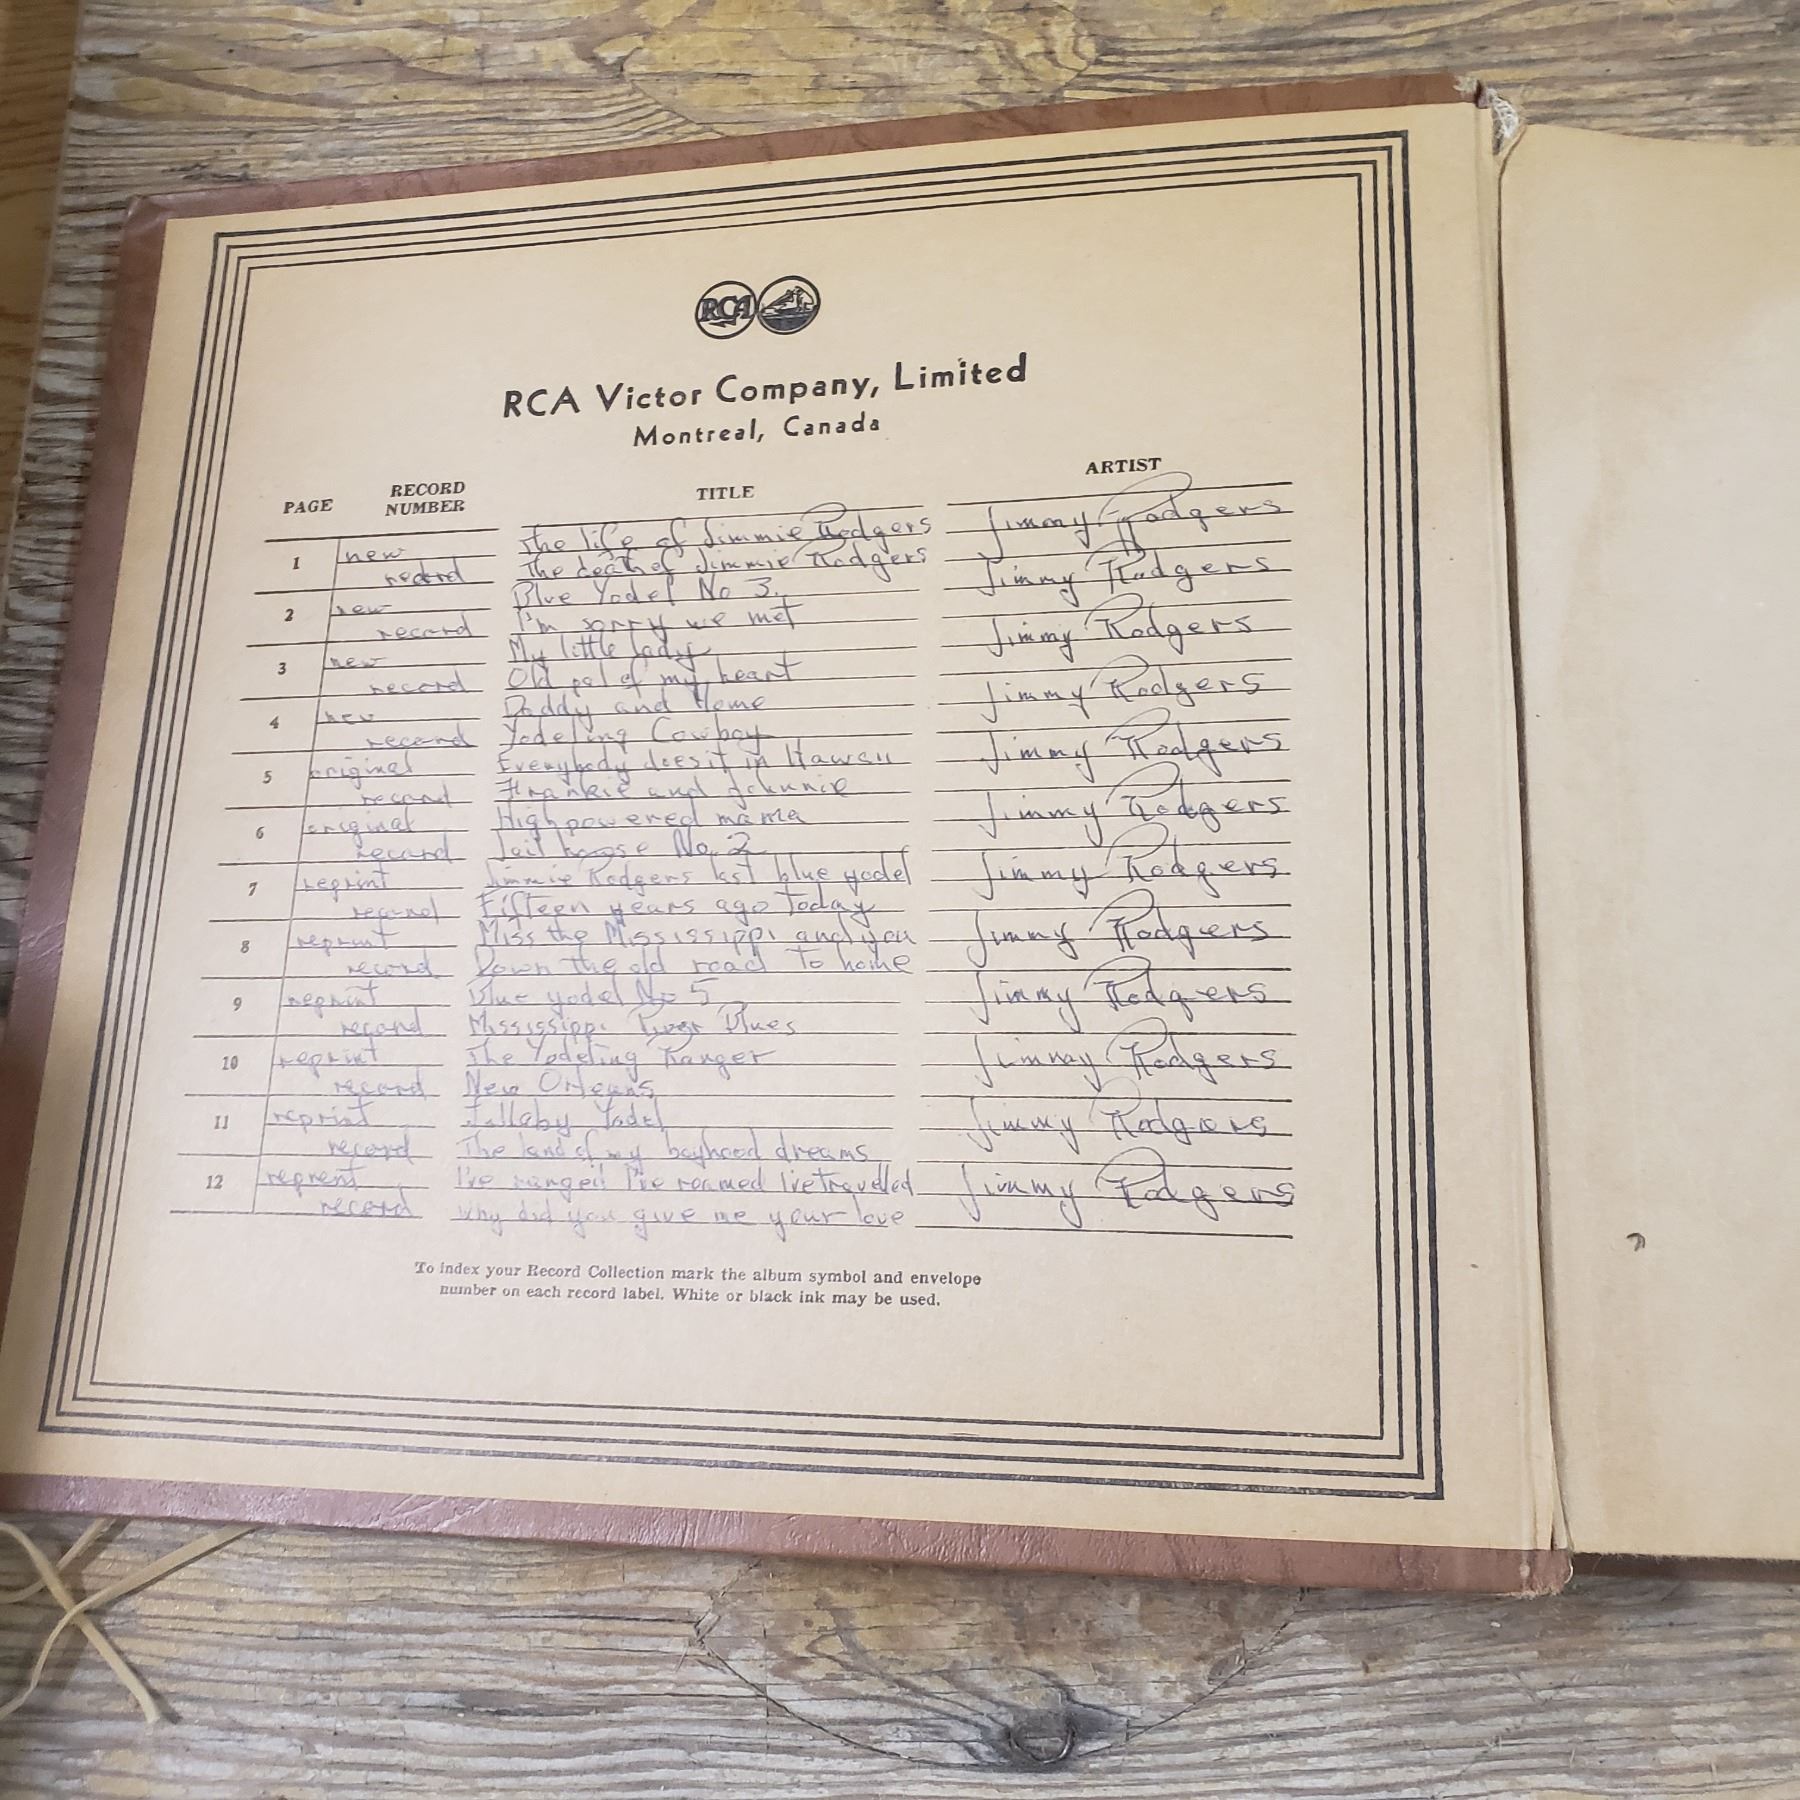 RCA
RCA Victor Company, Limited
Montreal, Canada
PAGE RECORD NUMBER TITLE ARTIST
1 new The life of Jimmie Rodgers Jimmy Rodgers
record The death of Jimmie Rodgers
2 new Blue Yodel No 3. Jimmy Rodgers
record I'm sorry we met
3 new My little lady Jimmy Rodgers
record Old pal of my heart
4 new Daddy and Home Jimmy Rodgers
record Yodeling Cowboy
5 original Everybody does it in Hawaii Jimmy Rodgers
record Frankie and Johnnie
6 original High powered mama Jimmy Rodgers
record Jail house No. 2
7 reprint Jimmie Rodgers last blue yodel Jimmy Rodgers
record Fifteen years ago today
8 reprint Miss the Mississippi and you Jimmy Rodgers
record Down the old road to home
9 reprint Blue yodel No 5 Jimmy Rodgers
record Mississippi River Blues
10 reprint The Yodeling Ranger Jimmy Rodgers
record New Orleans
11 reprint Lullaby Yodel Jimmy Rodgers
record The land of my boyhood dreams
12 reprent I've ranged I've roamed I've travelled Jimmy Rodgers
record Why did you give me your love
To index your Record Collection mark the album symbol and envelope
number on each record label. White or black ink may be used.